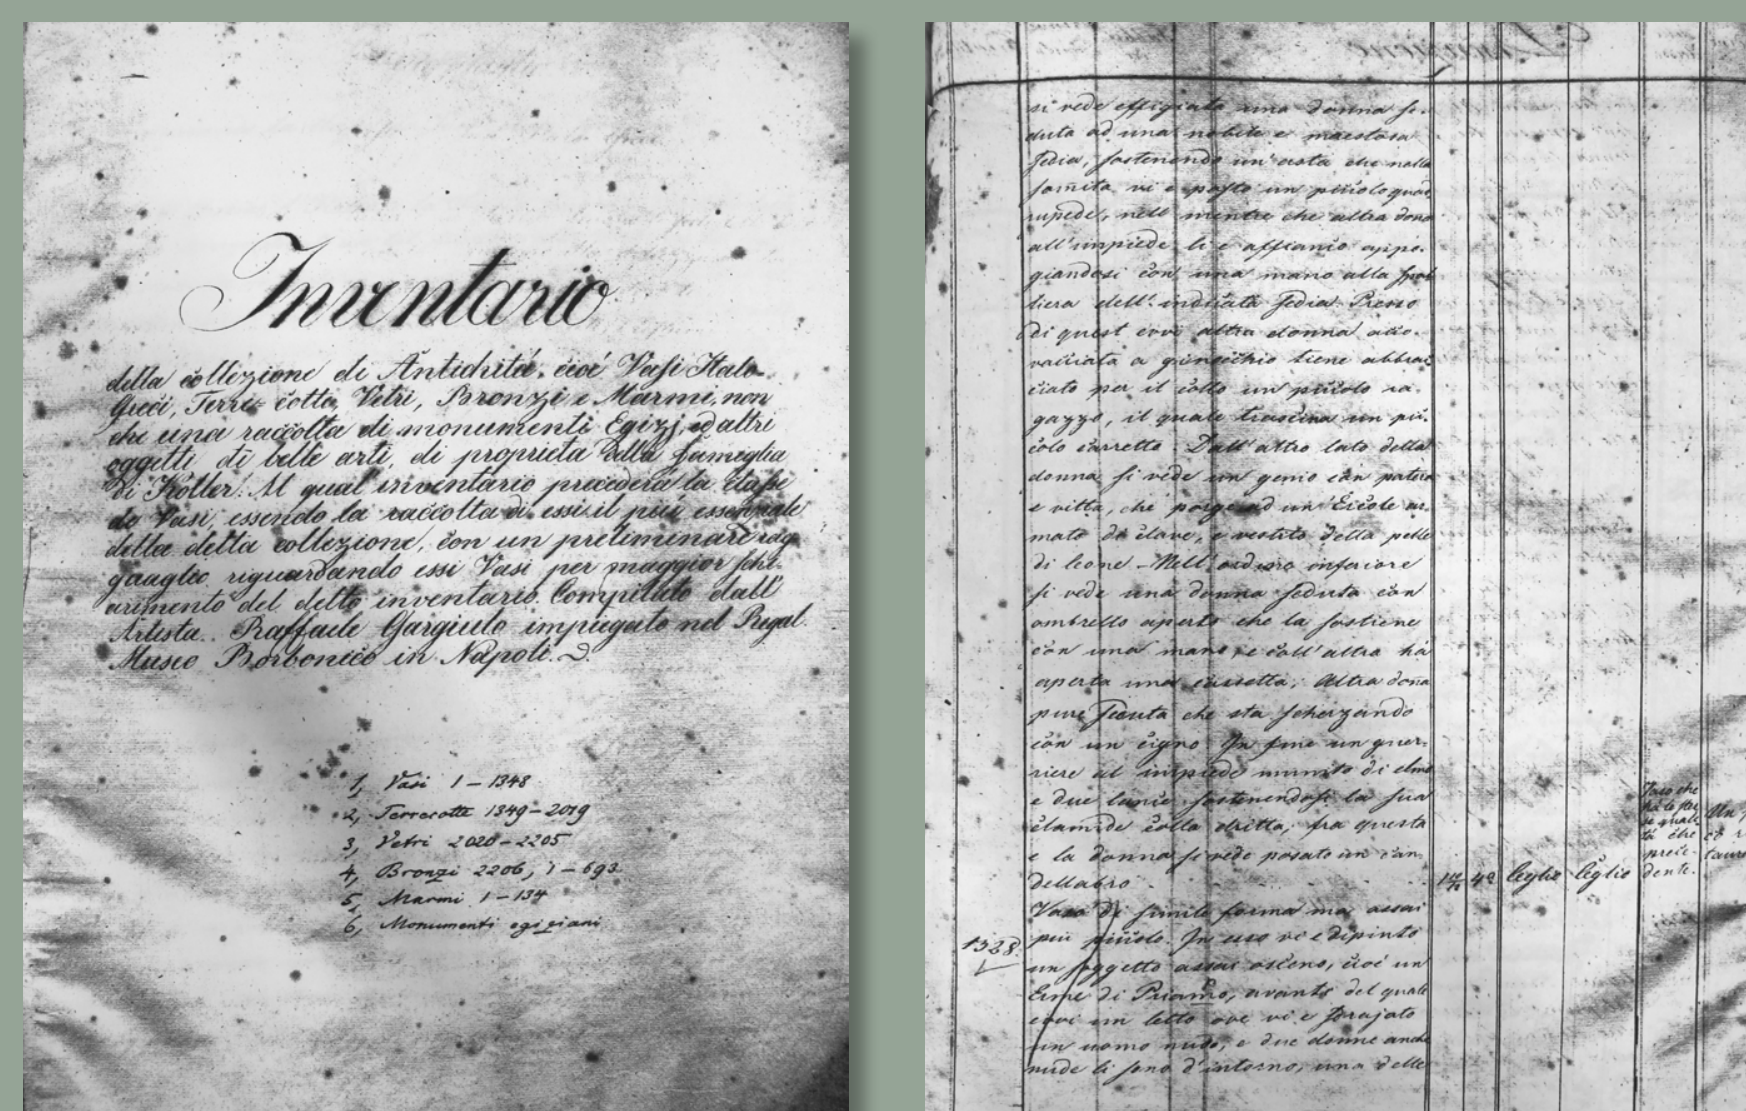 Inventario
della collezione di Antichità, cioè Vasi Italo-
Greci, Terre cotte, Vetri, Bronzi e Marmi, non
che una raccolta di monumenti Egizj, ed altri
oggetti di belle arti, di proprietà della fameglia
di Koller. Al qual inventario precederà la classe
de Vasi, essendo la raccolta di essi il più essenziale
della detta collezione, con un preliminare rag-
guaglio riguardando essi Vasi per maggior schi-
arimento del detto inventario. Compilato dall'
Artista Raffaele Gargiulo impiegato nel Regal
Museo Borbonico in Napoli.
1, Vasi 1-1348
2, Terrecotte 1349-2019
3, Vetri 2020-2205
4, Bronzi 2206, 1-693
5, Marmi 1-134
6, Monumenti egiziani
si vede effigiata una donna se-
duta ad una nobile e maestosa
sedia, sostenendo un'asta che nella
somita vi è posto un piccolo quad
rupede, nell mentre che altra dona
all'impiede li è affianco appo-
giandosi con una mano alla spal
liera dell'indicata sedia. Presso
di quest evvi altra donna acco-
vacciata a ginocchio tiene abbrac
ciato per il collo un piccolo ra-
gazzo, il quale trascina un pic-
colo carretto. Dall'altro lato della
donna si vede un genio con patera
e vitta, che porge ad un Ercole ar-
mato di clave, e vestito della pelle
di leone - Nell'ordine inferiore
si vede una donna seduta con
ombrello aperto che la sostiene
con una mano, e coll'altra ha
aperta una cassetta; Altra dona
pure seduta che sta scherzando
con un cigno. In fine un guer-
riere al impiede munito di elmo
e due lancie sostenendosi la sua
clamide colla dritta; fra questa
e la donna si vede posato un can-
dellabro
42 lieglio lieglio
Vaso che
ha le stes
se quali-
tà che
prece-
dente.
1328.
Vaso di simile forma ma assai
più piccolo. In esso vi è dipinto
un soggetto assai osceno, cioè un
Erme di Priamo, avanti del quale
evvi un letto ove vi è sdrajato
un uomo nudo, e due donne anche
nude li sono d'intorno; una delle